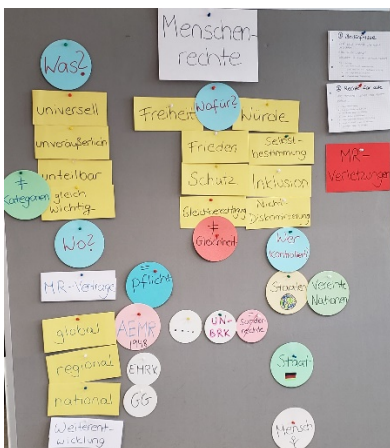 Menschen-
rechte
Was?
universell
unveräußerlich
unteilbar
gleich
wichtig
≠
Kategorien
Wofür?
Freiheit
Würde
Frieden
Selbst-
bestimmung
Schutz
Inklusion
Gleichberechtigung
Nicht-
Diskriminierung
≠
Gleichheit
MR-
Verletzungen
Wo?
MR-Verträge
=
Pflicht
Wer
kontrolliert?
Staaten
Vereinte
Nationen
global
AEMR
1948
....
UN-
BRK
Kinder
rechte
regional
EMRK
Staat
national
GG
Weiterent-
wicklung
Mensch